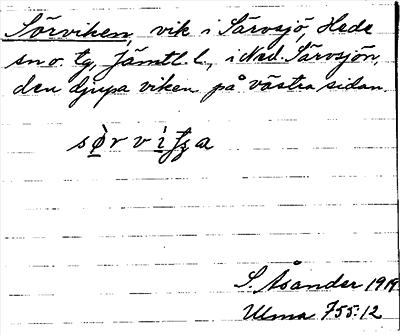 Sörviken, vik i Särvsjö, Hede
sn o. tg, Jämtl. l., i Ned. Särvsjön
den djupa viken på västra sidan.
sø̀rvìʈʂa
S. Åsander 1919
Ulma 755:12